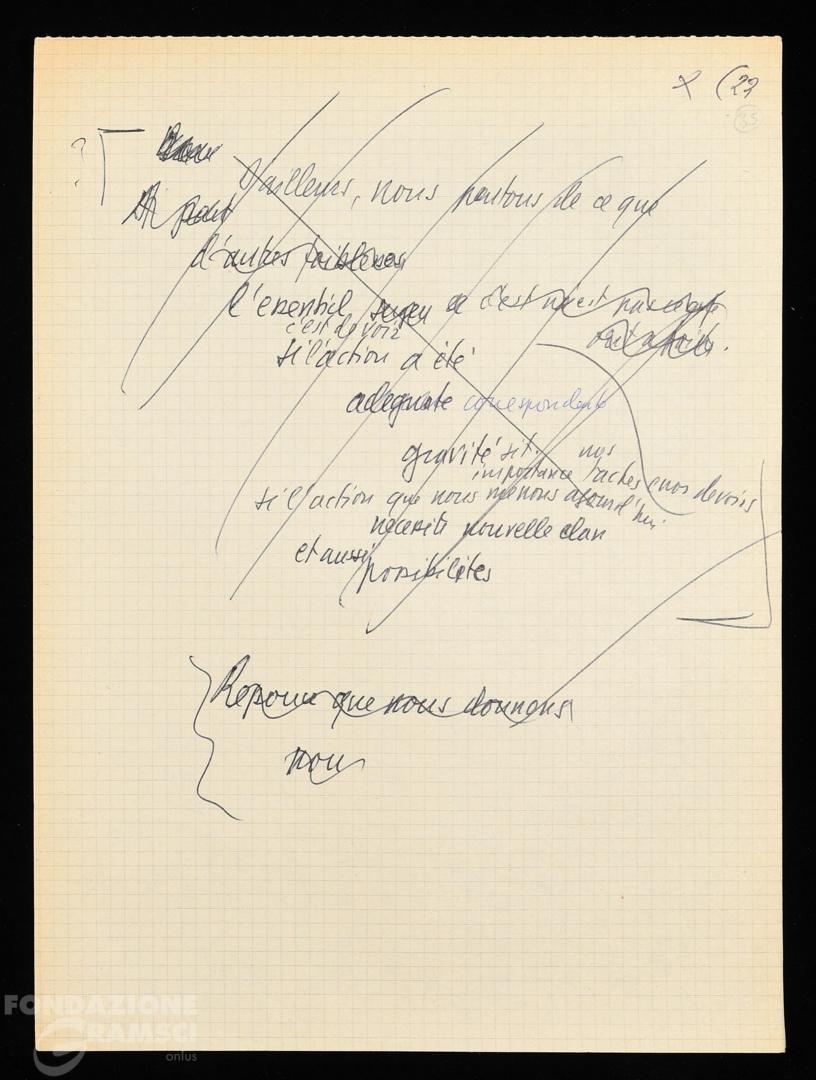 (27
35
?
d'ailleurs, nous partons de ce que
d'autres faiblesses
l'essentiel ce c'est n'est pas
c'est de voir
si l'action a été
adeguate correspondente
gravité sit. nos
importance taches e nos devoirs
si l'action que nous menons aujourd'hui
necessite nouvelle elan
et aussi possibilites
Repour que nous donnons
nous
FONDAZIONE
GRAMSCI
onlus